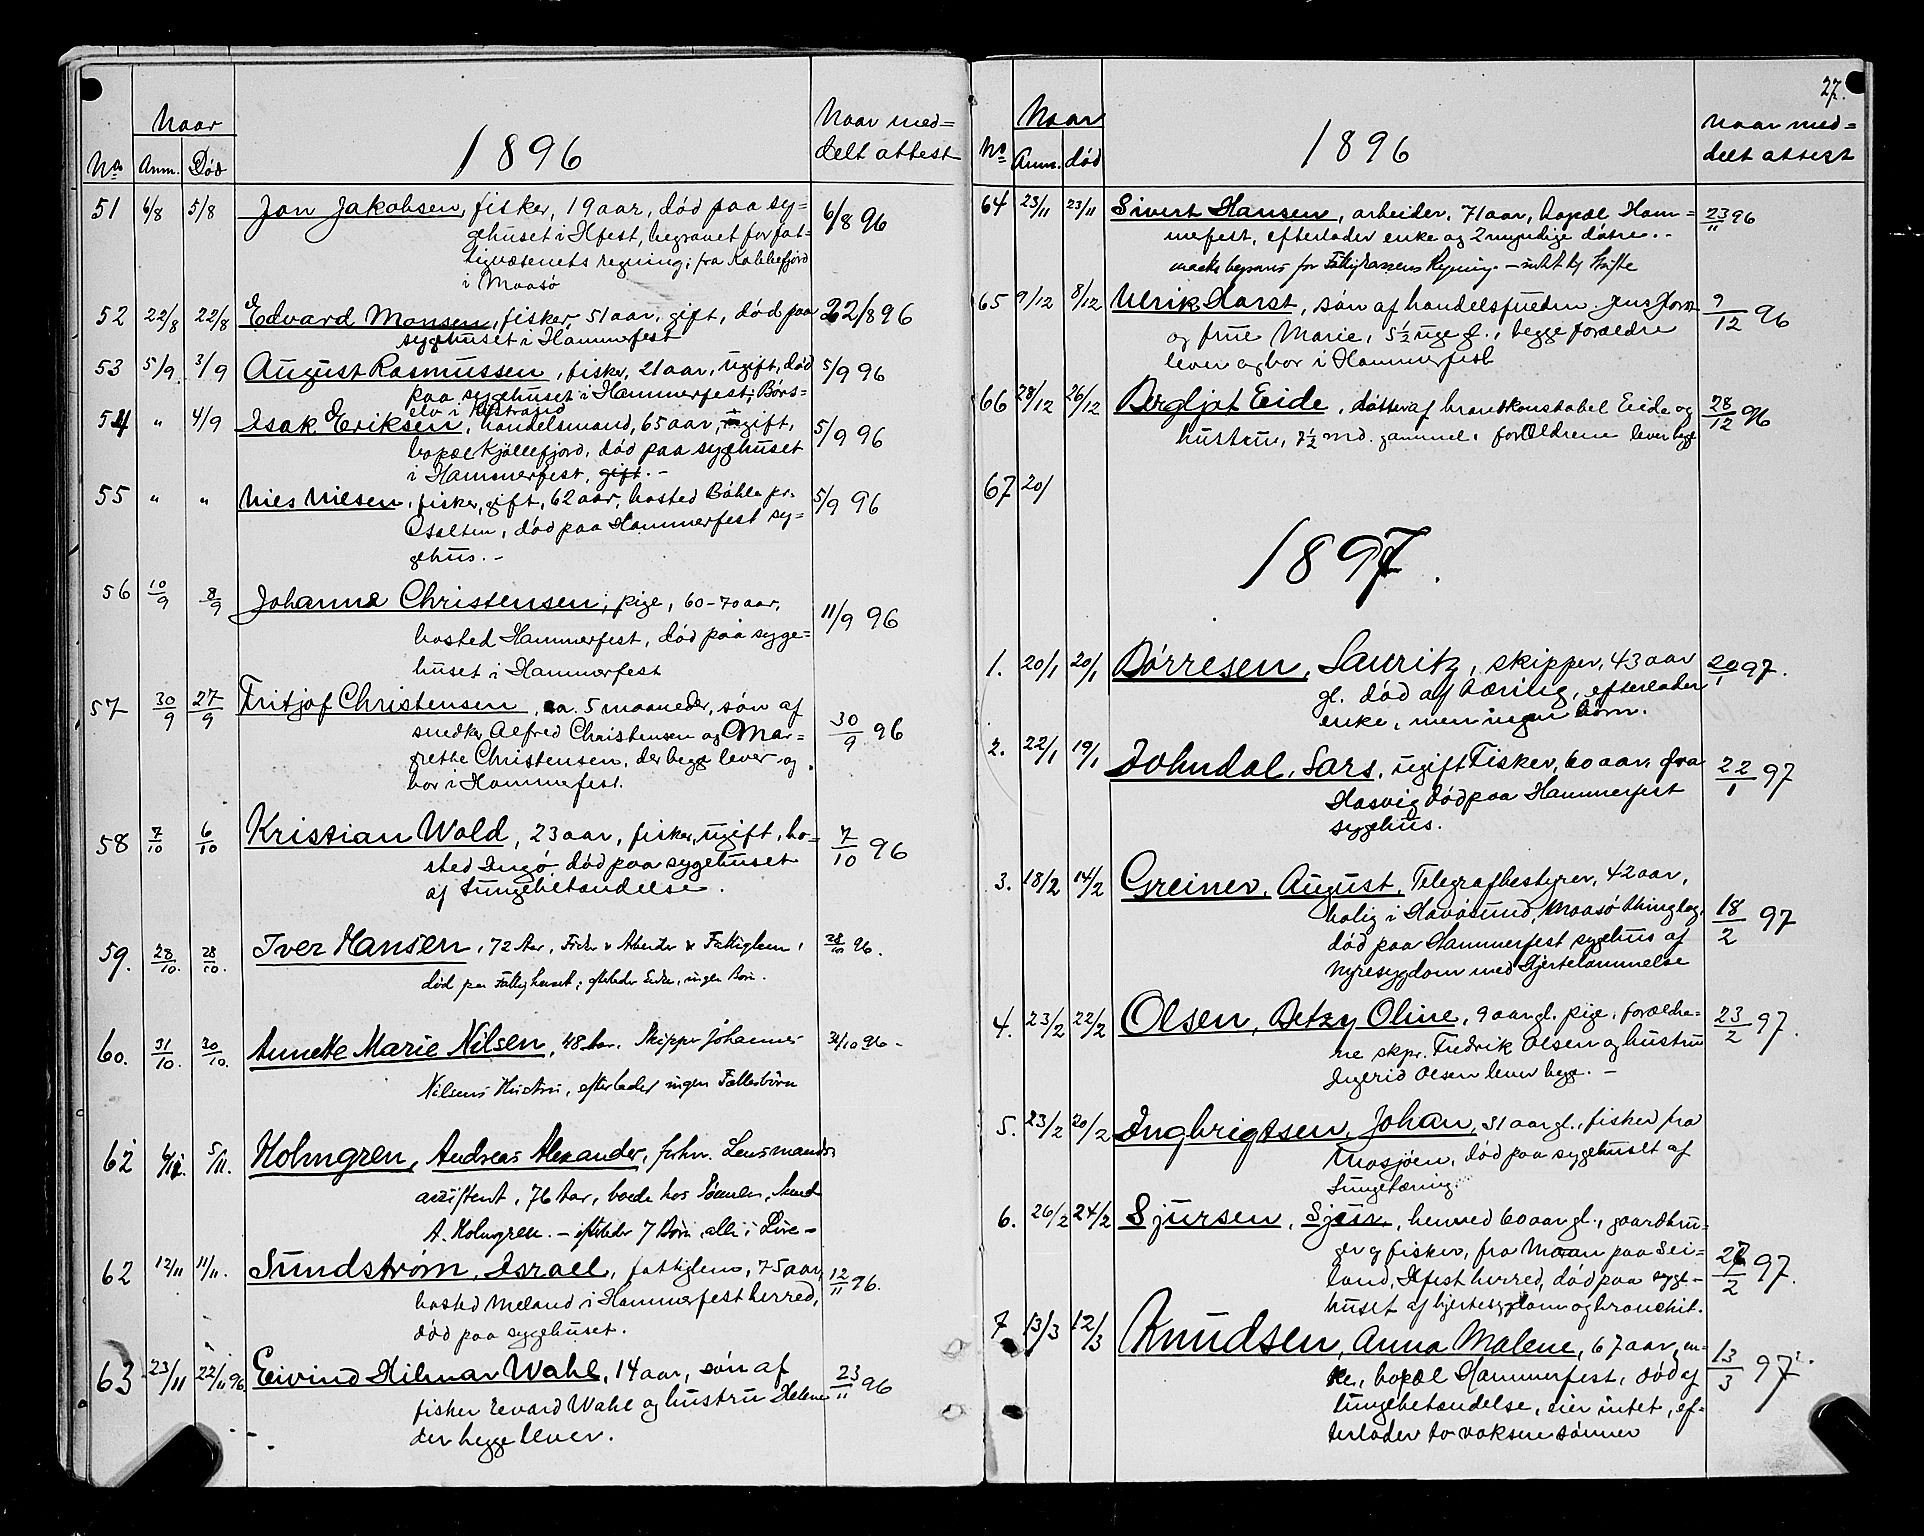 Naar
Naar med=
1896
delt attest
No Anm. Død
51 6/8 5/8 Jon Jakobsen, fisker, 19 aar, død paa sy= 6/8 96
gehuset i Hfest, begravet for fat=
tigvæsenets regning; fra Kobbefjord
i Maasø
52 22/8 22/8 Edvard Monsen, fisker, 51 aar, gift, død paa 22/8 96
sygehuset i Hammerfest
53 5/9 3/9 August Rasmussen, fisker, 21 aar, ugift, død 5/9 96
paa sygehuset i Hammerfest; Børs=
elv i Kistrand
54 " 4/9 Isak Eriksen, handelsmand, 65 aar, gift, 5/9 96
bopæl Kjøllefjord, død paa sygehuset
i Hammerfest, gift. -
55 " " Nils Nilsen, fisker, gift, 62 aar, bosted Bøhle pr. 5/9 96
Salten, død paa Hammerfest sy=
gehus. -
56 10/9 8/9 Johanna Christensen, pige, 60-70 aar, 11/9 96
bosted Hammerfest, død paa syge=
huset i Hammerfest
57 30/9 27/9 Fritjof Christensen, ca. 5 maaneder, søn af 30/9 96
snedker Alfred Christensen og Mar=
grethe Christensen, der begge lever og
bor i Hammerfest.
58 7/10 6/10 Kristian Wold, 23 aar, fisker, ugift, bo= 7/10 96
sted Ingø, død paa sygehuset
af lungebetændelse.
59. 28/10. 28/10. Iver Hansen, 72 Aar, Fisker & Arbeider & Fattiglem, 28/10 96.
død paa Fattighuset; efterlader Enke, ingen Børn.
60. 31/10. 30/10. Annette Marie Nilsen, 48 Aar. Skipper Johannes 31/10 96 -
Nilsens Hustru, efterlader ingen Fællesbørn
62 5/11. Holmgren, Andreas Alexander, forhv. Lensmands
assistent, 76 Aar, boede hos Sønnen,
A. Holmgren. - efterlader 7 Børn, alle i Live -
62 12/11 11/11. Sundstrøm, Israel, fattiglem, 75 aar, 12/11 96.
bosted Meland i Hammerfest herred,
død paa sygehuset.
63 23/11 22/11 96. Eivind Hilmar Wahl, 14 aar, søn af 23/11 96
fisker Edvard Wahl og hustru Helene
der begge lever.
27.
Naar
Naar med=
1896
delt attest
No Anm. død
64 23/11 23/11 Sivert Hansen, arbeider, 71 aar, bopæl Ham= 23/11 96
merfest, efterlader enke og 2 myndige døtre. -
maatte begraves for Fattigkassens Regning -
65 9/12 8/12 Ulrik Horst, søn af handelsfuldm. Jens Horst 9/12 96
og frue Marie, 5 1/2 uge gl., begge forældre
lever og bor i Hammerfest
66 28/12 26/12 Bergljot Eide, datter af brandkonstabel Eide og 28/12 96
hustru, 7 1/2 md. gammel, forældrene lever begge
67 20/
1897.
1. 20/1 20/1 Børresen, Lauritz, skipper, 43 aar 20/1 97.
gl. død af tæring, efterlader
enke, men ingen børn.
2. 22/1 19/1 Johndal, Lars, ugift Fisker, 60 aar, fra 22/1 97
Hasvig død paa Hammerfest
sygehus.
3. 18/2 14/2 Greiner, August, Telegrafbestyrer, 42 aar, 18/2 97
bolig i Havøsund, Maasø thinglag,
død paa Hammerfest sygehus af
Nyresygdom med Hjertelammelse
4. 23/2 22/2 Olsen, Betzy Oline, 9 aar gl. pige, foræld­re= 23/2 97.
ne skpr. Fredrik Olsen og hustru
Ingerid Olsen lever begge. -
5. 23/2 20/2 Ingbrigtsen, Johan, 31 aar gl., fisker fra
Mosjøen, død paa sygehuset af
Lungetæring.
6. 26/2 24/2 Sjursen, Sjur, henved 60 aar gl., gaardbru= 27/2 97.
ger og fisker, fra Maan paa Sei=
land, Hfest herred, død paa syge=
huset af hjertesygdom og bronchit.
7 13/3 12/3 Knudsen, Anna Malene, 67 aar, en= 13/3 97.
ke, bopæl Hammerfest, død af
lungebetændelse, eier intet, ef=
terlader to voksne sønner